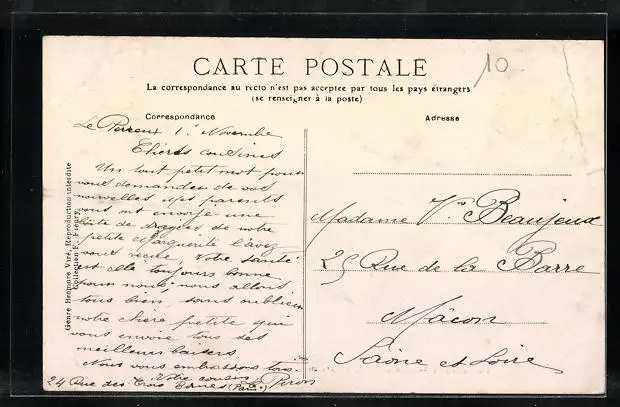 10
CARTE POSTALE
La correspondance au recto n'est pas acceptée par tous les pays étrangers
(se renseigner à la poste)
Correspondance
Adresse
Genre Bromure Viré, Reproduction interdite
Collection F. Fleury
Le Perreux 1er Novembre
Chères cousines
Un tout petit mot pour
vous demander de vos
nouvelles mes parents
vous ont envoyé une
boîte de dragées de notre
petite Marguerite l'avez
vous reçue, Votre santé
est elle toujours bonne
pour nous nous allons
tous bien, sans oublier
notre chère petite qui
vous envoie tous ses
meilleurs baisers
Nous vous embrassons tous.
Votre cousin
24 Rue des Trois Bornes (Paris)
Madame Ve Beaujeux
25 Rue de la Barre
Mâcon
Saône et Loire